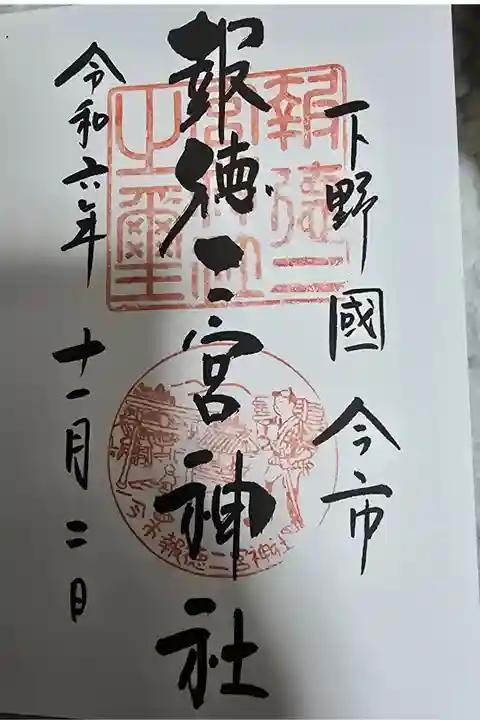 下野國 今市
報徳二宮神社
令和六年 十一月二日
報徳二宮神社之璽
今市 報徳二宮神社